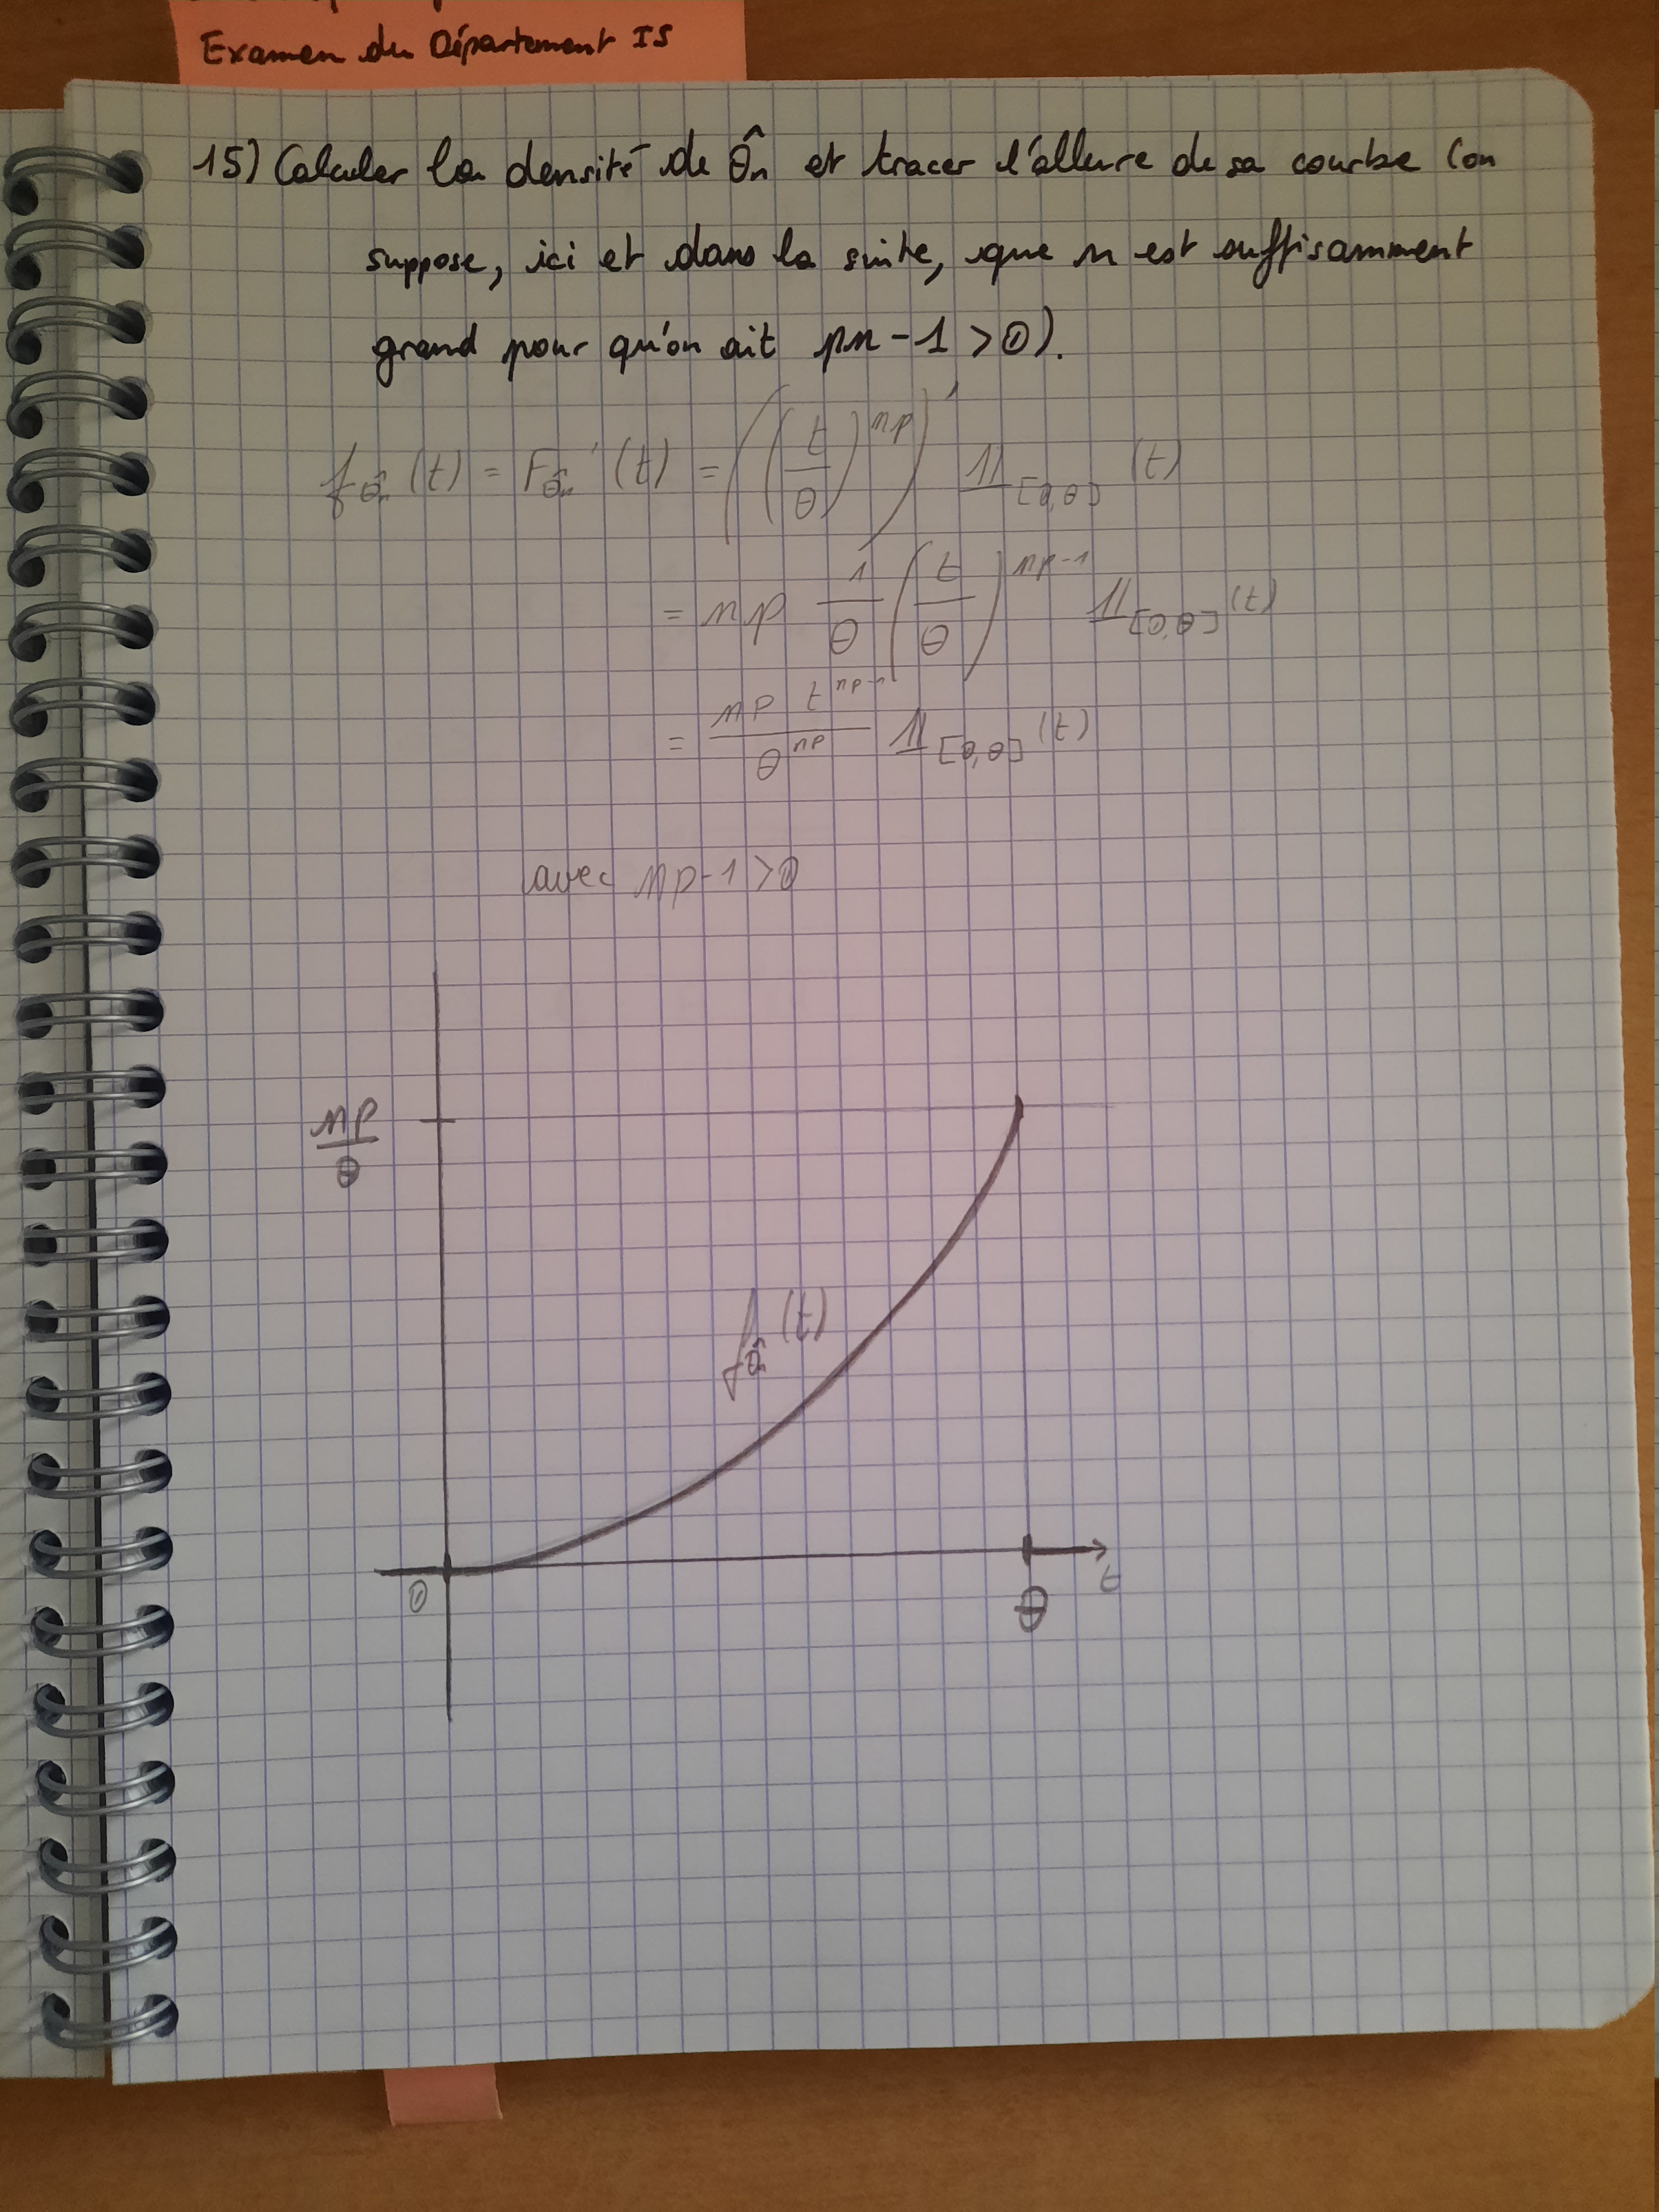 Examen du Département IS
15) Calculer la densité de θ̂n et tracer l'allure de sa courbe (on
suppose, ici et dans la suite, que n est suffisamment
grand pour qu'on ait pn - 1 > 0).
f_θ̂n (t) = F_θ̂n' (t) = ((t/θ)^np)' 𝟙_[0,θ] (t)
= np 1/θ (t/θ)^np-1 𝟙_[0,θ] (t)
= np t^np-1 / θ^np 𝟙_[0,θ] (t)
avec np-1 > 0
np/θ
f_θ̂n (t)
0
θ
t